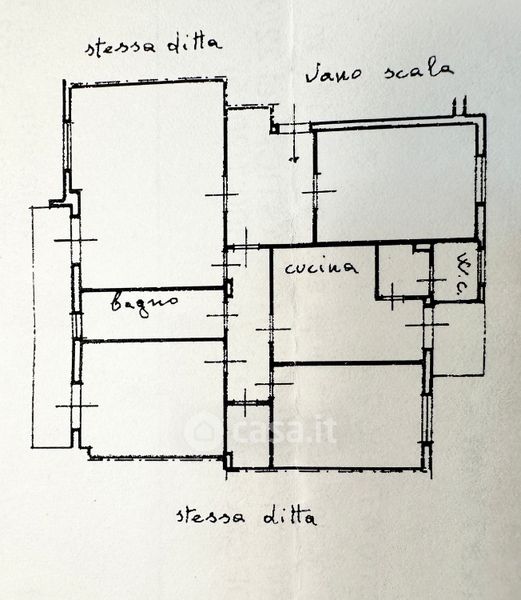 stessa ditta
vano scala
cucina
W.C.
bagno
casa.it
stessa ditta